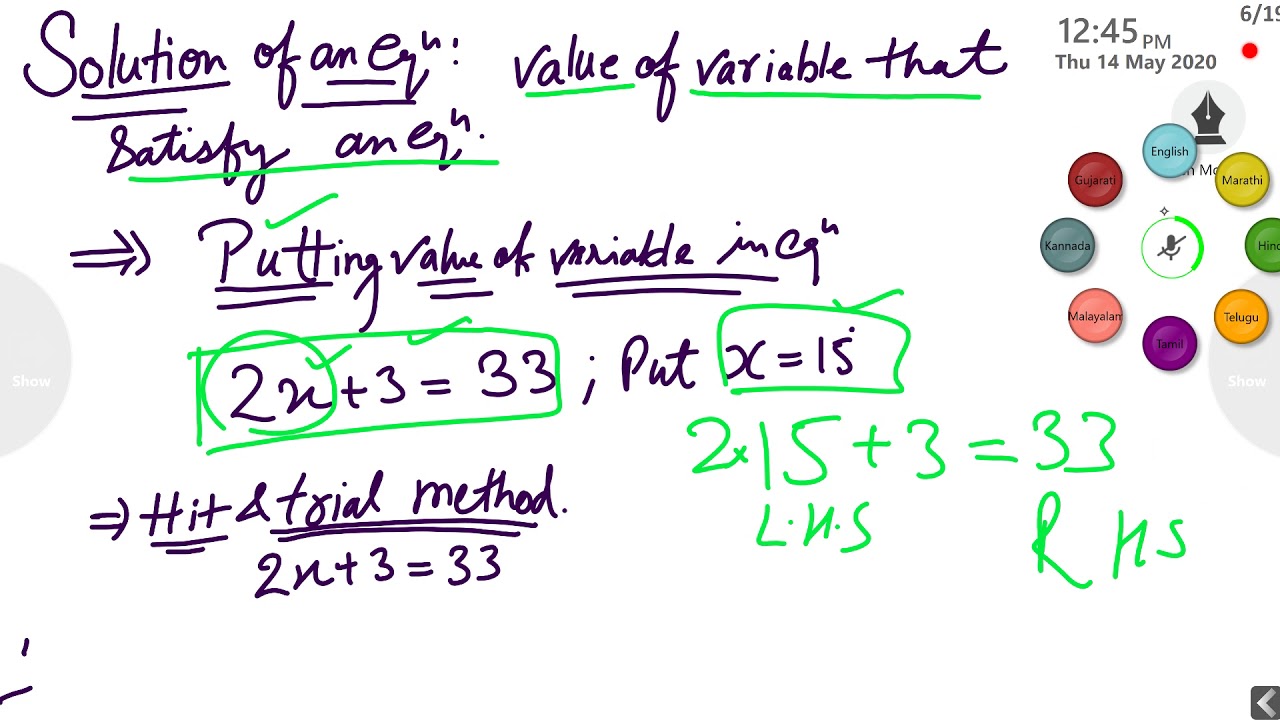 Solution of an eqⁿ: value of variable that
satisfy an eqⁿ.
⇒ Putting value of variable in eqⁿ
2x+3 = 33 ; Put x = 15
2×15 + 3 = 33
L.H.S R H S
⇒ Hit & trial method.
2x+3 = 33
6/19
12:45 PM
Thu 14 May 2020
English
Gujarati
Marathi
Kannada
Hind
Malayalam
Telugu
Tamil
Show
Show